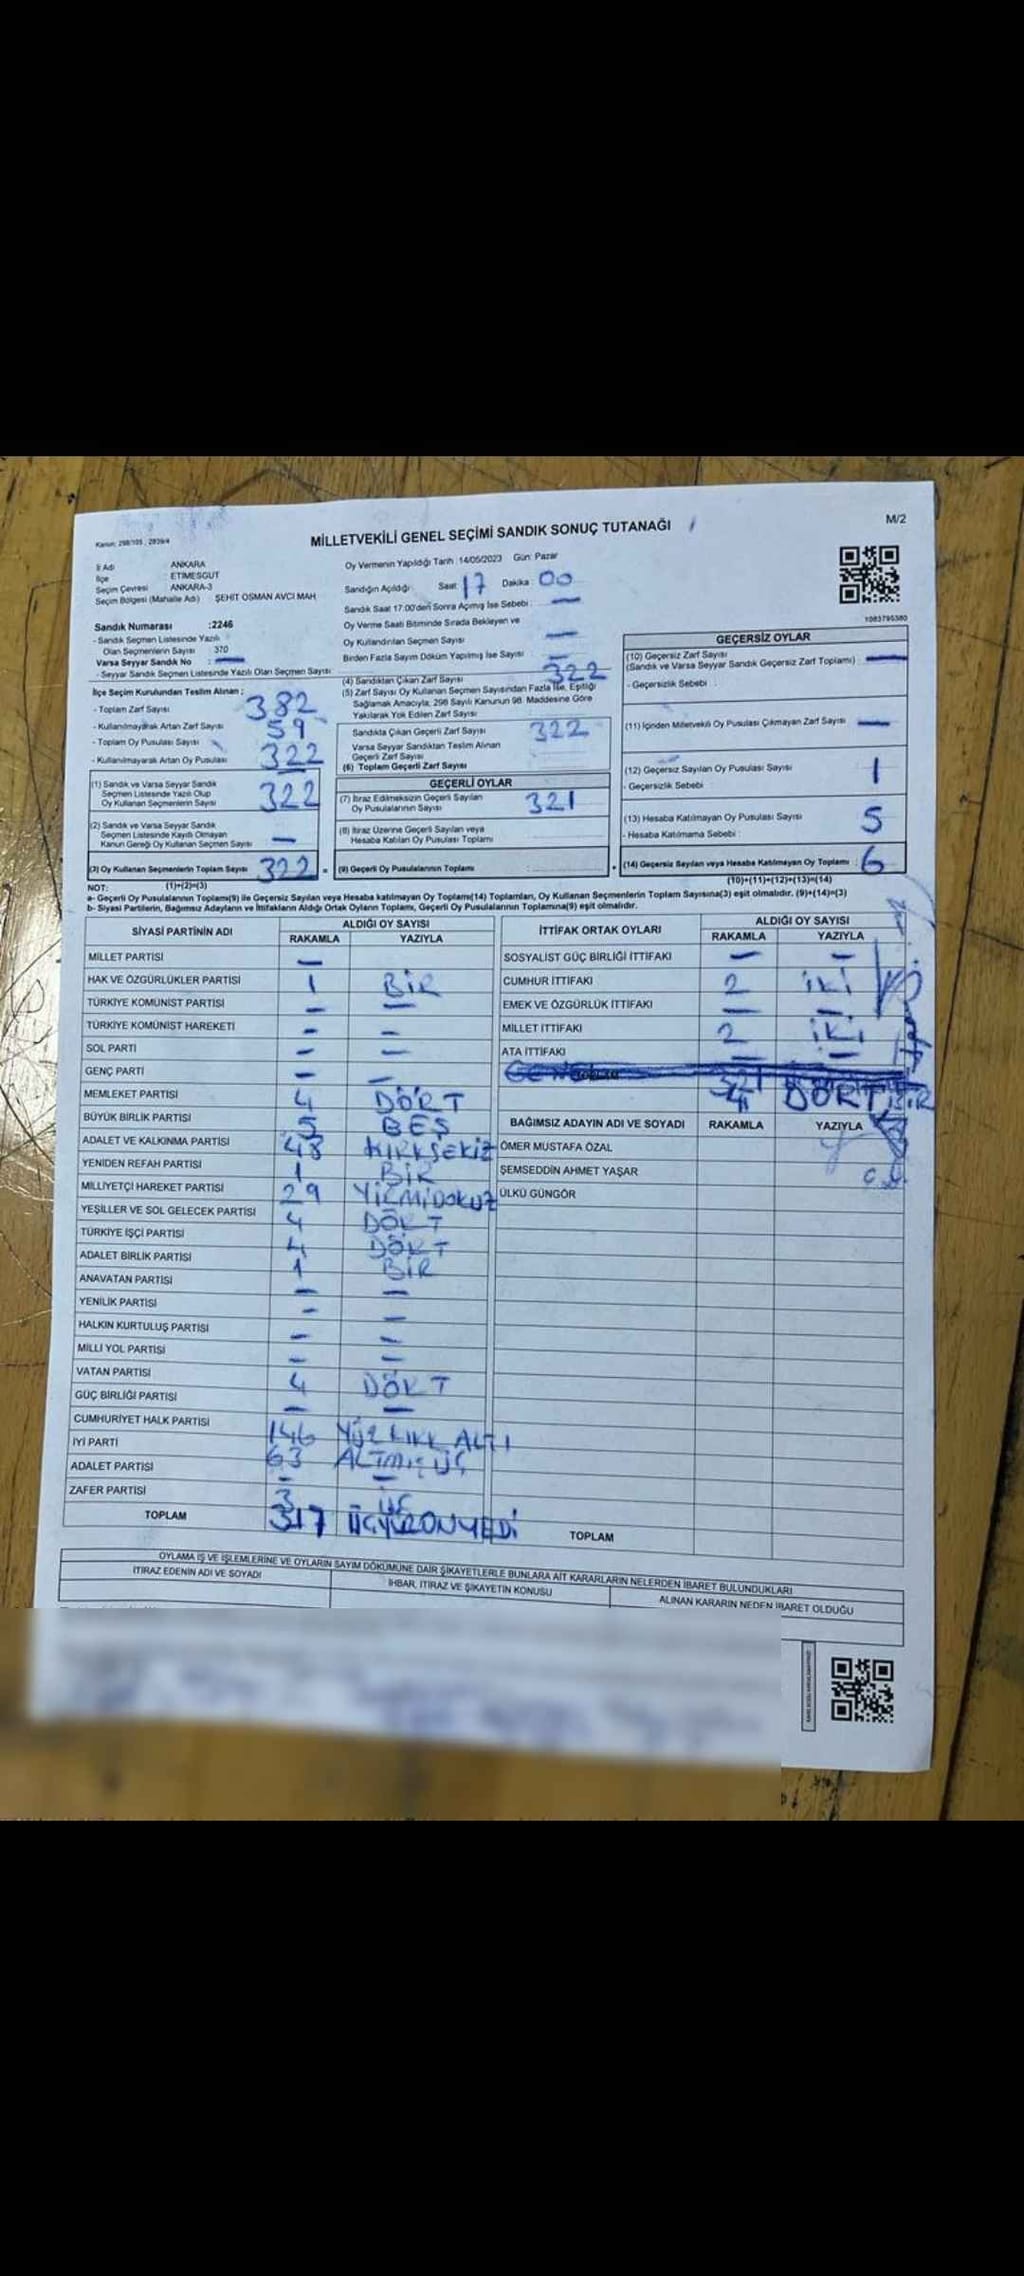 MİLLETVEKİLİ GENEL SEÇİMİ SANDIK SONUÇ TUTANAĞI
M/2
Kanun: 298/105 , 2839/4
İl Adı ANKARA
İlçe ETİMESGUT
Seçim Çevresi ANKARA-3
Seçim Bölgesi (Mahalle Adı) ŞEHİT OSMAN AVCI MAH.
Sandık Numarası :2246
- Sandık Seçmen Listesinde Yazılı
Olan Seçmenlerin Sayısı 370
Varsa Seyyar Sandık No : —
- Seyyar Sandık Seçmen Listesinde Yazılı Olan Seçmen Sayısı
İlçe Seçim Kurulundan Teslim Alınan :
- Toplam Zarf Sayısı 382
- Kullanılmayarak Artan Zarf Sayısı 59
- Toplam Oy Pusulası Sayısı
- Kullanılmayarak Artan Oy Pusulası 322
(1) Sandık ve Varsa Seyyar Sandık
Seçmen Listesinde Yazılı Olup
Oy Kullanan Seçmenlerin Sayısı 322
(2) Sandık ve Varsa Seyyar Sandık
Seçmen Listesinde Kayıtlı Olmayan
Kanun Gereği Oy Kullanan Seçmen Sayısı —
(3) Oy Kullanan Seçmenlerin Toplam Sayısı 322 =
(1)+(2)=(3)
Oy Vermenin Yapıldığı Tarih : 14/05/2023 Gün: Pazar
Sandığın Açıldığı Saat 17 Dakika 00
Sandık Saat 17:00'den Sonra Açmış İse Sebebi : —
Oy Verme Saati Bitiminde Sırada Bekleyen ve
Oy Kullandırılan Seçmen Sayısı —
Birden Fazla Sayım Döküm Yapılmış İse Sayısı : —
(4) Sandıktan Çıkan Zarf Sayısı 322
(5) Zarf Sayısı Oy Kullanan Seçmen Sayısından Fazla İse, Eşitliği
Sağlamak Amacıyla; 298 Sayılı Kanunun 98. Maddesine Göre
Yakılarak Yok Edilen Zarf Sayısı
Sandıkta Çıkan Geçerli Zarf Sayısı 322
Varsa Seyyar Sandıktan Teslim Alınan
Geçerli Zarf Sayısı
(6) Toplam Geçerli Zarf Sayısı
GEÇERLİ OYLAR
(7) İtiraz Edilmeksizin Geçerli Sayılan
Oy Pusulalarının Sayısı 321
(8) İtiraz Üzerine Geçerli Sayılan veya
Hesaba Katılan Oy Pusulası Toplamı
(9) Geçerli Oy Pusulalarının Toplamı +
1083795380
GEÇERSİZ OYLAR
(10) Geçersiz Zarf Sayısı
(Sandık ve Varsa Seyyar Sandık Geçersiz Zarf Toplamı) : —
- Geçersizlik Sebebi :
(11) İçinden Milletvekili Oy Pusulası Çıkmayan Zarf Sayısı —
(12) Geçersiz Sayılan Oy Pusulası Sayısı 1
- Geçersizlik Sebebi
(13) Hesaba Katılmayan Oy Pusulası Sayısı 5
- Hesaba Katılmama Sebebi :
(14) Geçersiz Sayılan veya Hesaba Katılmayan Oy Toplamı : 6
(10)+(11)+(12)+(13)=(14)
NOT:
a- Geçerli Oy Pusulasının Toplamı(9) ile Geçersiz Sayılan veya Hesaba katılmayan Oy Toplamı(14) Toplamları, Oy Kullanan Seçmenlerin Toplam Sayısına(3) eşit olmalıdır. (9)+(14)=(3)
b- Siyasi Partilerin, Bağımsız Adayların ve İttifakların Aldığı Ortak Oyların Toplamı, Geçerli Oy Pusulalarının Toplamına(9) eşit olmalıdır.
SİYASİ PARTİNİN ADI
ALDIĞI OY SAYISI
RAKAMLA YAZIYLA
MİLLET PARTİSİ —
HAK VE ÖZGÜRLÜKLER PARTİSİ 1 BİR
TÜRKİYE KOMÜNİST PARTİSİ — —
TÜRKİYE KOMÜNİST HAREKETİ — —
SOL PARTİ — —
GENÇ PARTİ — —
MEMLEKET PARTİSİ 4 DÖRT
BÜYÜK BİRLİK PARTİSİ 5 BEŞ
ADALET VE KALKINMA PARTİSİ 48 KIRKSEKİZ
YENİDEN REFAH PARTİSİ 1 BİR
MİLLİYETÇİ HAREKET PARTİSİ 29 YİRMİDOKUZ
YEŞİLLER VE SOL GELECEK PARTİSİ 4 DÖRT
TÜRKİYE İŞÇİ PARTİSİ 4 DÖRT
ADALET BİRLİK PARTİSİ 1 BİR
ANAVATAN PARTİSİ — —
YENİLİK PARTİSİ — —
HALKIN KURTULUŞ PARTİSİ — —
MİLLİ YOL PARTİSİ — —
VATAN PARTİSİ 4 DÖRT
GÜÇ BİRLİĞİ PARTİSİ — —
CUMHURİYET HALK PARTİSİ 146 ALTI
İYİ PARTİ 63 ALTMIŞ ÜÇ
ADALET PARTİSİ — —
ZAFER PARTİSİ 3 ÜÇ
TOPLAM 317 ÜÇYÜZONYEDİ
İTTİFAK ORTAK OYLARI
ALDIĞI OY SAYISI
RAKAMLA YAZIYLA
SOSYALİST GÜÇ BİRLİĞİ İTTİFAKI — —
CUMHUR İTTİFAKI 2 İKİ
EMEK VE ÖZGÜRLÜK İTTİFAKI — —
MİLLET İTTİFAKI 2 İKİ
ATA İTTİFAKI — —
4 DÖRT
BAĞIMSIZ ADAYIN ADI VE SOYADI RAKAMLA YAZIYLA
ÖMER MUSTAFA ÖZAL
ŞEMSEDDİN AHMET YAŞAR
ÜLKÜ GÜNGÖR
TOPLAM
OYLAMA İŞ VE İŞLEMLERİNE VE OYLARIN SAYIM DÖKÜMÜNE DAİR ŞİKAYETLERLE BUNLARA AİT KARARLARIN NELERDEN İBARET BULUNDUKLARI
İTİRAZ EDENİN ADI VE SOYADI
İHBAR, İTİRAZ VE ŞİKAYETİN KONUSU
ALINAN KARARIN NEDEN İBARET OLDUĞU